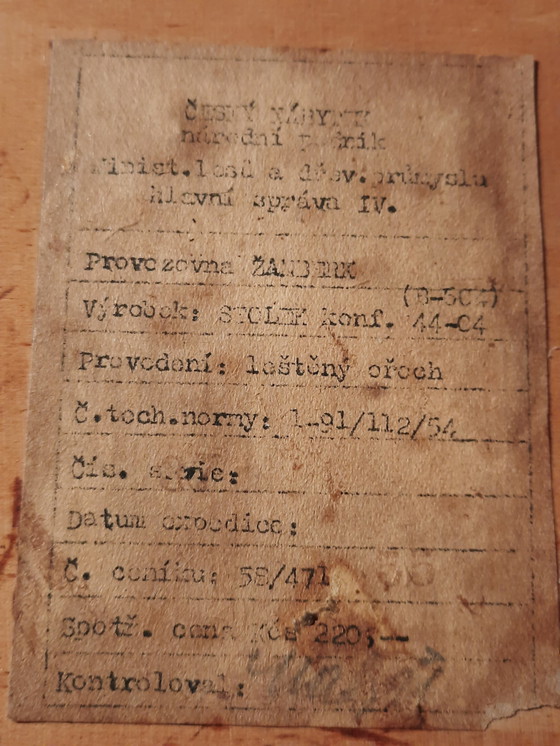 ČESKÝ NÁBYTEK
národní podnik
Minist.lesů a dřev.průmyslu
Hlavní správa IV.
Provozovna ŽAMBERK
Výrobek: STOLEK konf. 44-04
Provedení: leštěný ořech
Č.tech.normy: 1-91/112/54
Čís. serie:
Datum expedice:
Č. ceníku: 58/471
Spotř. cena Kčs 220,--
Kontroloval: